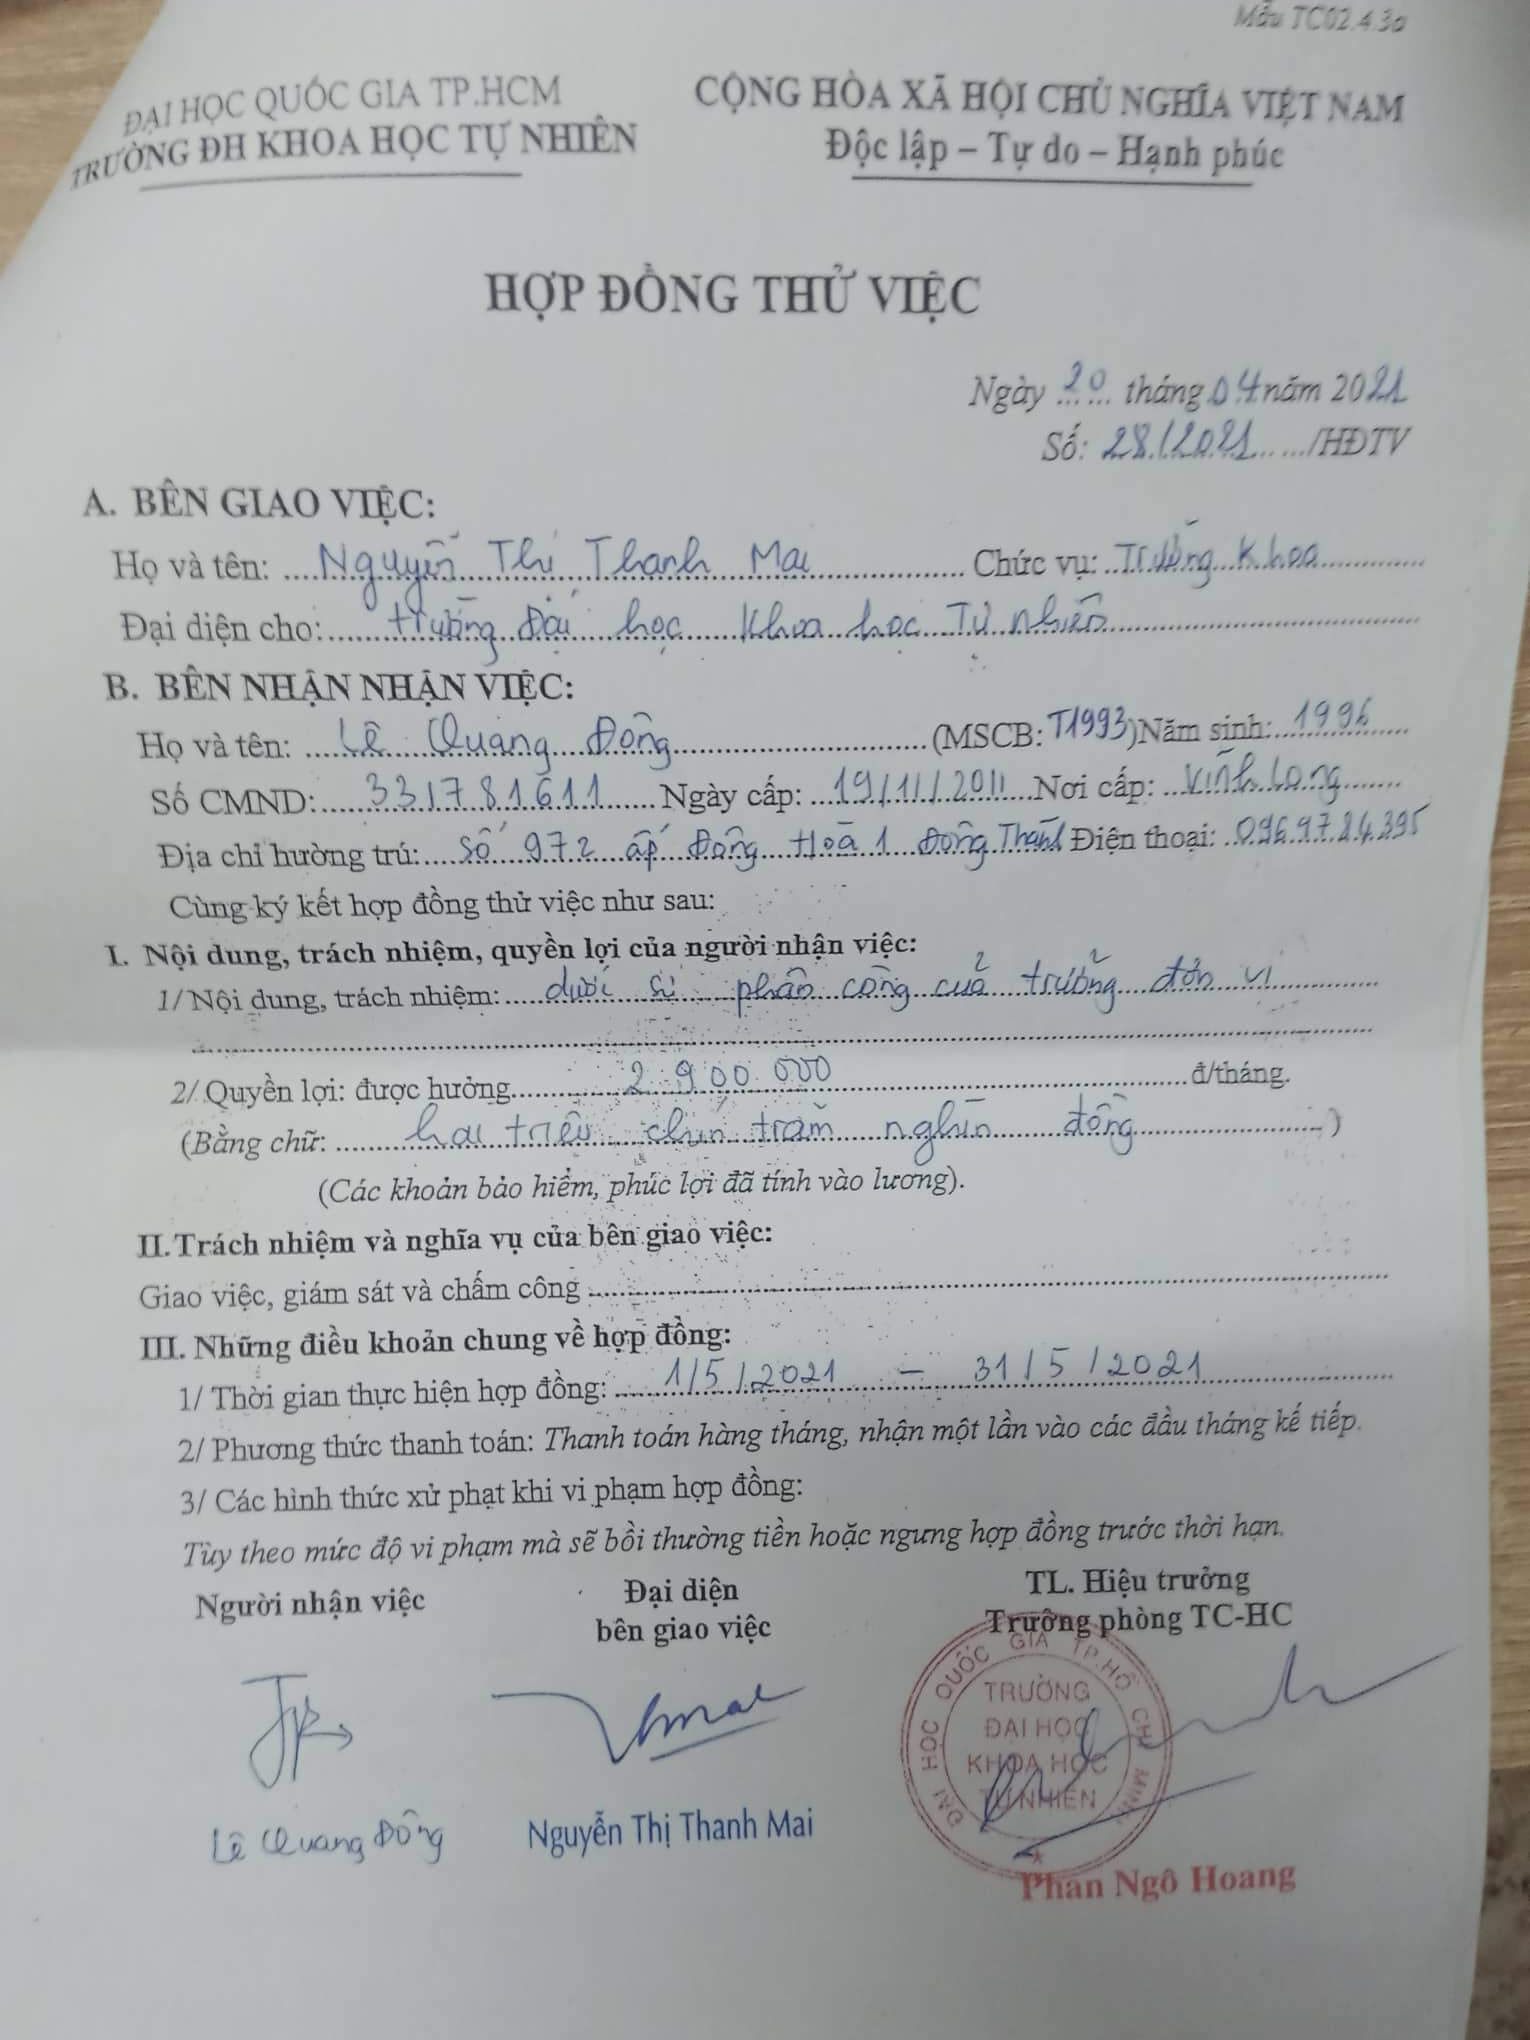 Mẫu TC02.4.3a
ĐẠI HỌC QUỐC GIA TP.HCM
TRƯỜNG ĐH KHOA HỌC TỰ NHIÊN
CỘNG HÒA XÃ HỘI CHỦ NGHĨA VIỆT NAM
Độc lập – Tự do – Hạnh phúc
HỢP ĐỒNG THỬ VIỆC
Ngày 20 tháng 04 năm 2021
Số: 28/2021 /HĐTV
A. BÊN GIAO VIỆC:
Họ và tên: Nguyễn Thị Thanh Mai Chức vụ: Trưởng Khoa
Đại diện cho: trường Đại học Khoa học Tự nhiên
B. BÊN NHẬN NHẬN VIỆC:
Họ và tên: Lê Quang Đông (MSCB: T1993) Năm sinh: 1996
Số CMND: 331781611 Ngày cấp: 19/11/2011 Nơi cấp: Vĩnh Long
Địa chỉ hường trú: Số 972 ấp Đông Hoà 1 Đông Thành Điện thoại: 0969784395
Cùng ký kết hợp đồng thử việc như sau:
I. Nội dung, trách nhiệm, quyền lợi của người nhận việc:
1/ Nội dung, trách nhiệm: dưới sự phân công của trưởng đơn vị
2/ Quyền lợi: được hưởng 2 900 000 đ/tháng.
(Bằng chữ: hai triệu chín trăm nghìn đồng )
(Các khoản bảo hiểm, phúc lợi đã tính vào lương).
II. Trách nhiệm và nghĩa vụ của bên giao việc:
Giao việc, giám sát và chấm công
III. Những điều khoản chung về hợp đồng:
1/ Thời gian thực hiện hợp đồng: 1/5/2021 – 31/5/2021
2/ Phương thức thanh toán: Thanh toán hàng tháng, nhận một lần vào các đầu tháng kế tiếp.
3/ Các hình thức xử phạt khi vi phạm hợp đồng:
Tùy theo mức độ vi phạm mà sẽ bồi thường tiền hoặc ngưng hợp đồng trước thời hạn.
Người nhận việc
Đại diện
bên giao việc
TL. Hiệu trưởng
Trưởng phòng TC-HC
ĐẠI HỌC QUỐC GIA TP.HỒ CHÍ MINH
TRƯỜNG
ĐẠI HỌC
KHOA HỌC
TỰ NHIÊN
Lê Quang Đông
Nguyễn Thị Thanh Mai
Phan Ngô Hoang